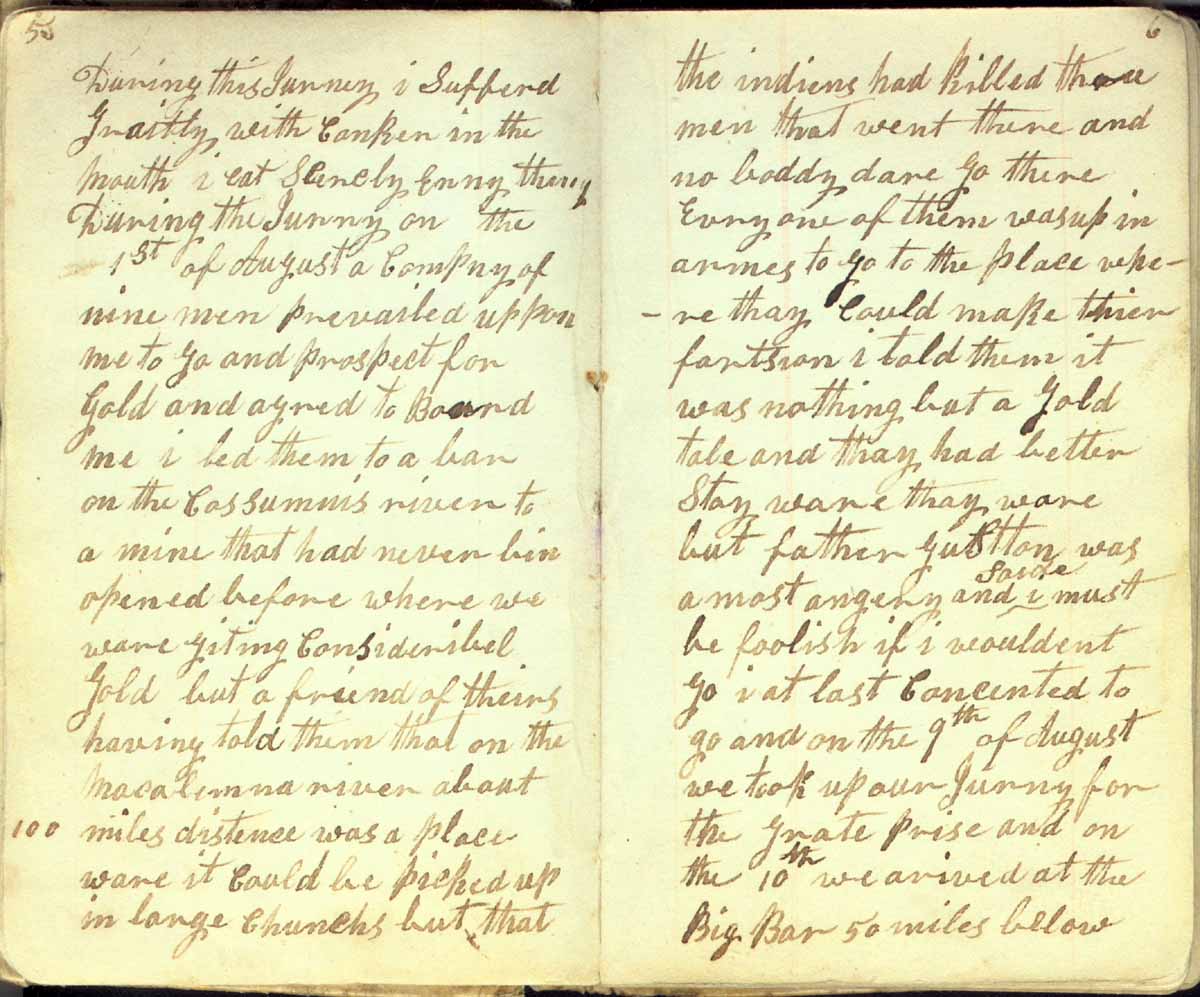 5
During this Jurney i Sufferd
Graitly with Canker in the
Mouth i eat Scercly Enny theng
During the Jurny on the
1st of August a Compny of
nine men prevailed uppon
me to go and prospect for
Gold and agred to Bourd
me i led them to a bar
on the Cossumnis river to
a mine that had never bin
opened before where we
ware giting Consideribel
Gold but a friend of theirs
having told them that on the
Macalemna river about
100 miles distence was a place
ware it Could be picked up
in large Chuncks but that
6
the indiens had killed
men that went there and
no boddy dare go there
Evry one of them was up in
armes to go to the place whe-
-re thay Could make thier
fartsion i told them it
was nothing but a Gold
tale and thay had better
Stay ware thay ware
but father was
a most angery and saide i must
be foolish if i wouldent
go i at last Concented to
go and on the 9th of August
we took up our Jurny for
the grate prise and on
the 10th we arived at the
Big Bar 50 miles below